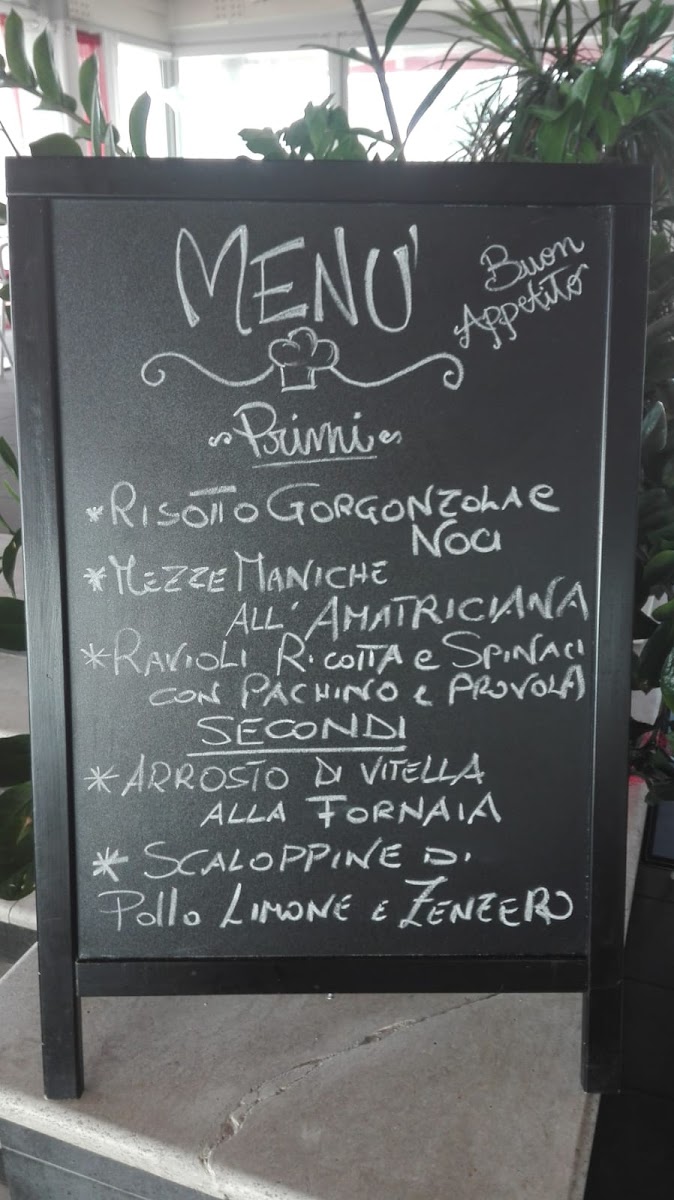 MENU'
Buon
Appetito
Primi
*RISOTTO GORGONZOLA e
NOCI
*MEZZE MANICHE
ALL'AMATRICIANA
*RAVIOLI RICOTTA e SPINACI
CON PACHINO e PROVOLA
SECONDI
*ARROSTO DI VITELLA
ALLA FORNAIA
* SCALOPPINE DI
Pollo LIMONE e ZENZERO